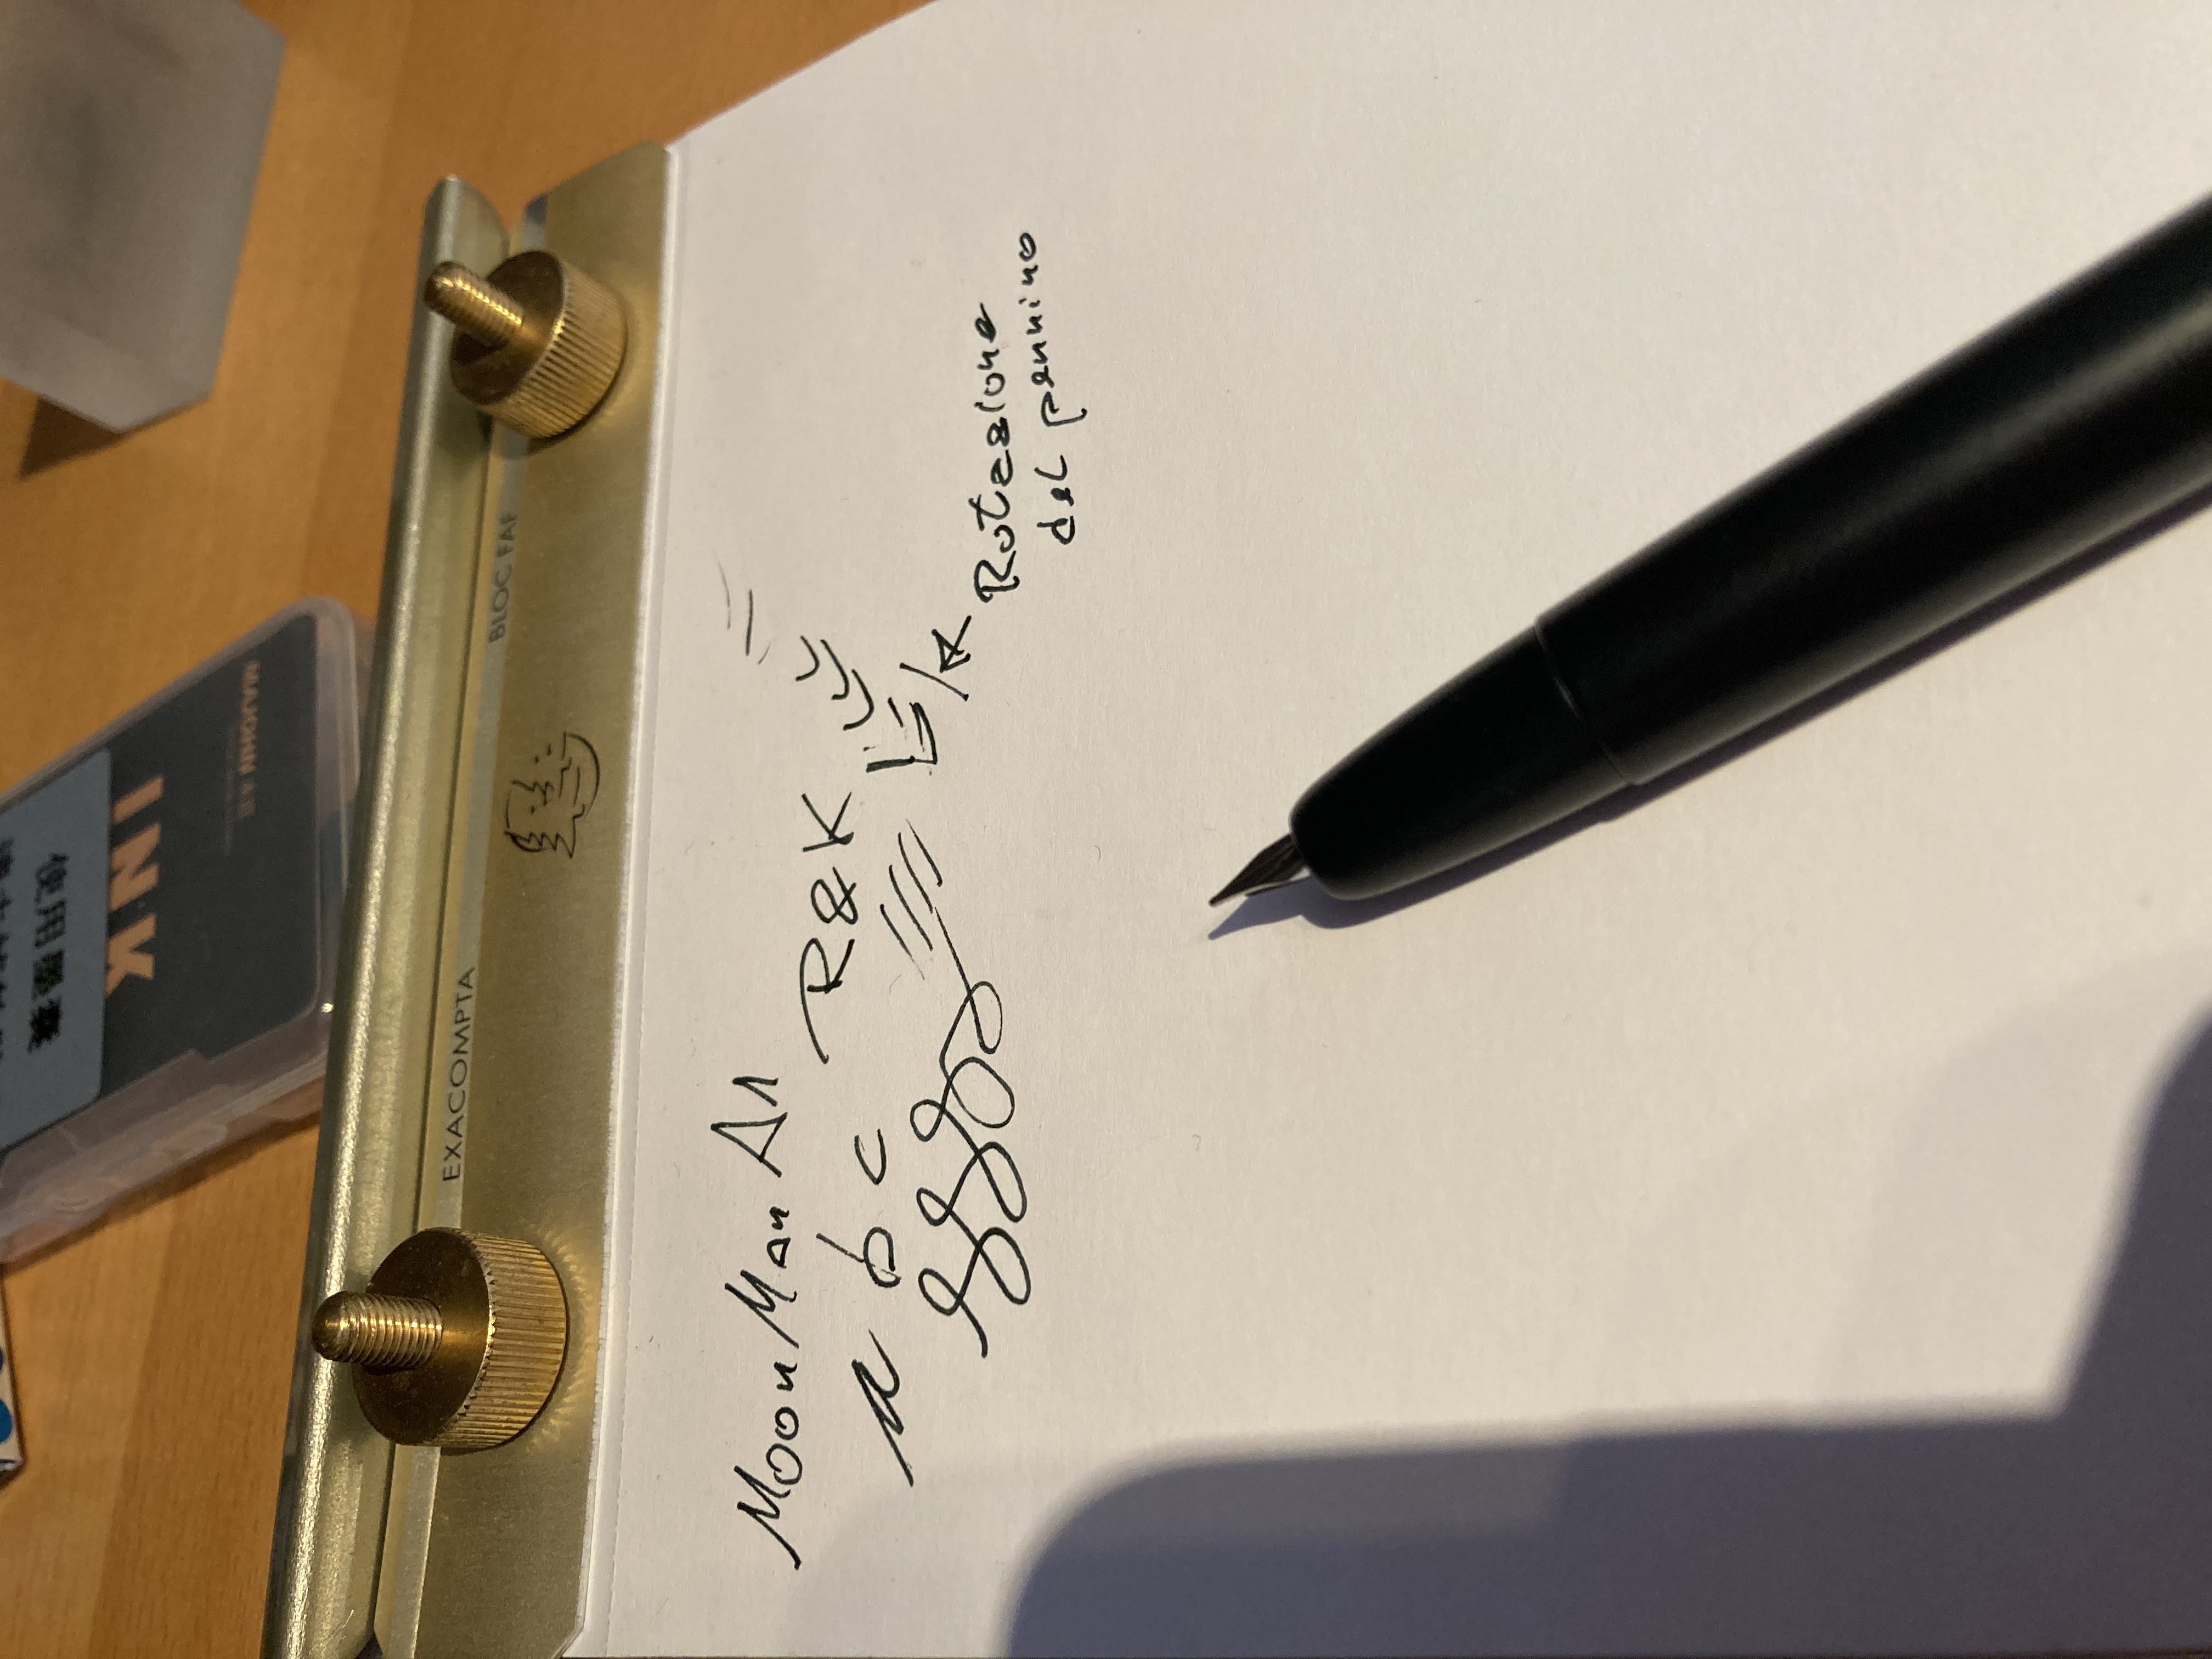 MAJOHN
INK
使用
EXACOMPTA BLOC FAF
MoonMan A1
a b c R&K
Rotazione
del pennino